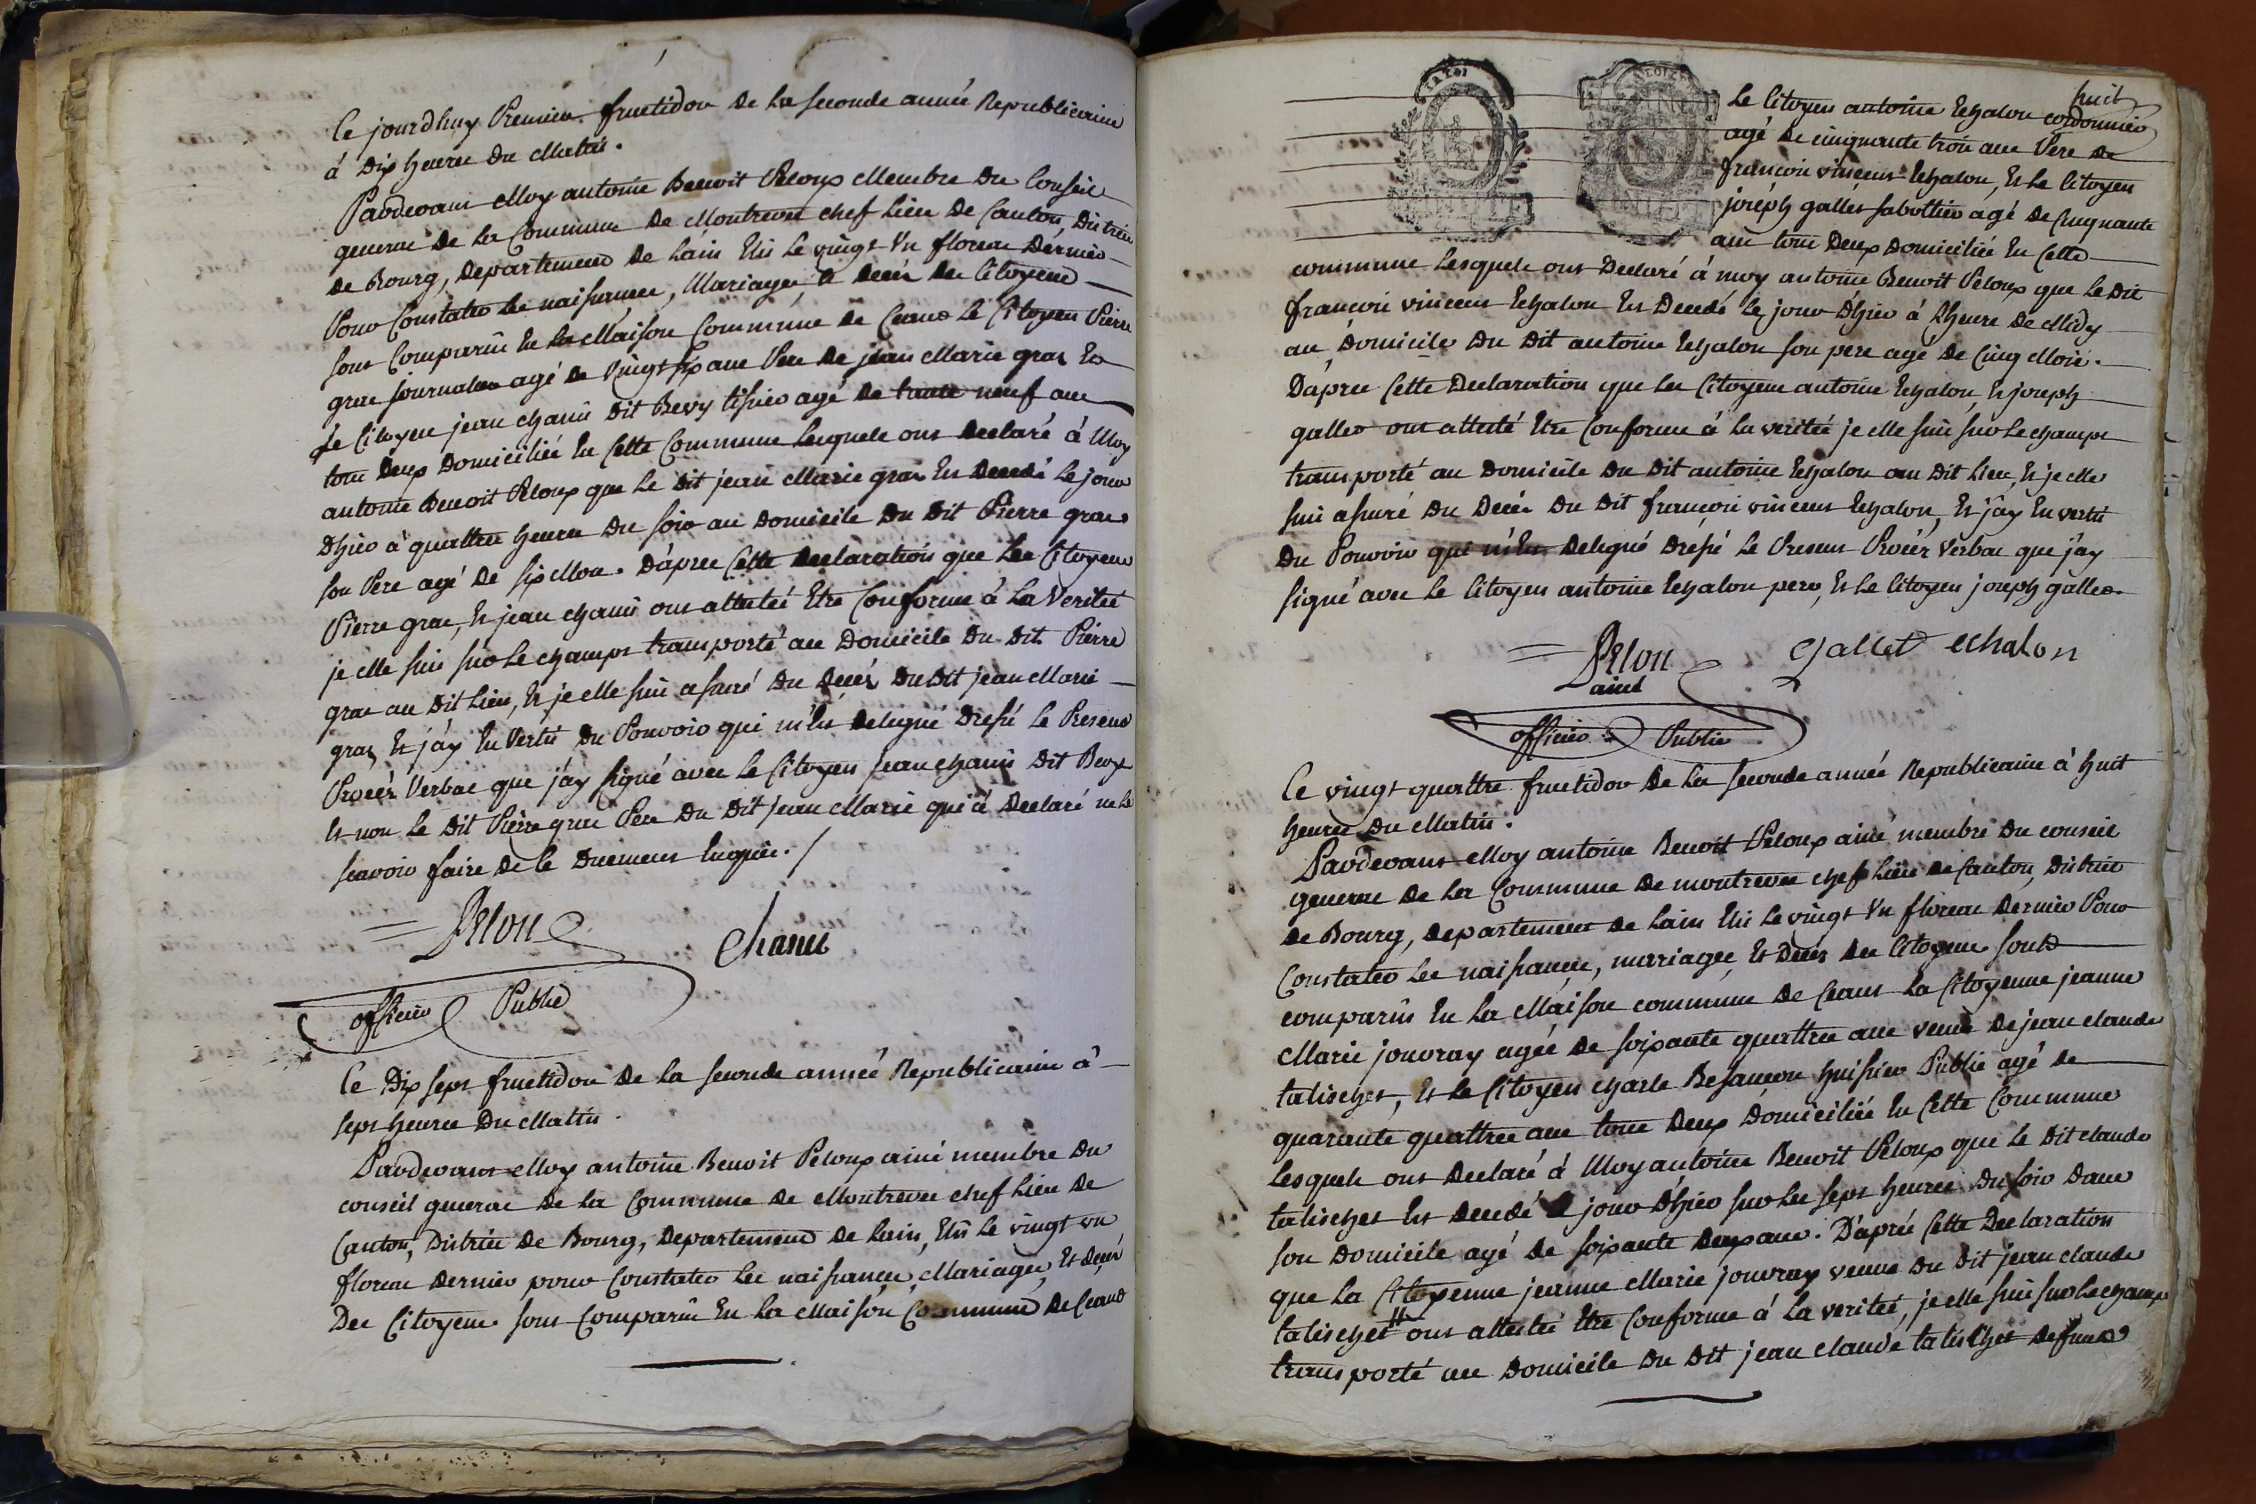 Ce jourdhuy Premier fructidor de la seconde année Republicaine
à dix heures du Matin.
Pardevant Moy antoine Benoit Peloux Membre du Conseil
general de la Commune de Montrevel chef Lieu de Canton, District
de Bourg, Departement de Lain Elü le vingt un floreal dernier
Pour Constater les naissances, Mariages, & decès des Citoyens
sont Comparûs En la Maison Commune de Ceans Le Citoyen Pierre
gras journalier agé de vingt six ans Pere de jean Marie gras Et
Le Citoyen jean chanü dit Bevy tissier agé de trante neuf ans
tous deux Domiciliés En Cette Commune Lesquels ont declaré à Moy
antoine Benoit Peloux que Le dit jean Marie gras Est decedé Le jour
d'hier à quattre heures du soir au domicile du dit Pierre gras
son Pere agé de six Mois. D'apres Cette declaration que Les Citoyens
Pierre gras, & jean chanü ont attesteé Etre Conforme à La Veriteé
je elle suis sur Le champs transporté au Domicile du dit Pierre
gras au dit Lieu, & je elle suis assuré du decès du dit jean Marie
gras, Et j'ay En Vertü du Pouvoir qui m'Est delegué dressé le Present
Procès Verbal que j'ay signé avec le Citoyen jean chanü dit Bevy
& non Le dit Pierre gras Pere du dit jean Marie qui à declaré ne le
scavoir faire de ce Duement Enquis. /
Pelou
Chanu
officier Public
Ce dix sept fructidor de la seconde année Republicaine à
sept heures du Matin.
Pardevant Moy antoine Benoit Peloux ainé membre du
conseil general de la Commune de Montrevel chef Lieu de
Canton, District de Bourg, Departement de Lain, Elü le vingt un
floreal dernier pour Constater les naissances, Mariages, Et decès
Des Citoyens sont Comparûs En La Maison Commune de Ceans
huit
Le Citoyen antoine Echalon cordonnier
agé de cinquante trois ans Pere de
francois vincent Echalon, Et Le Citoyen
joséph gallet sabottier agé de Cinquante
ans tous deux domiciliés En Cette
commune Lesquels ont declaré à moy antoine Benoit Peloux que Le dit
françois vincent Echalon Est Decedé Le jour d'hier à L'heure de Midy
au domicile du dit antoine Echalon son pere agé de Cinq Mois.
D'apres Cette declaration que Les Citoyens antoine Echalon, & joseph
gallet ont attesté Etre Conforme à La veriteé je elle suis sur Le champs
transporté au domicile du dit antoine Echalon au dit Lieu, & je elle
suis assuré du Decès du dit françois vincent Echalon, Et j'ay En vertü
du Pouvoir qui m'Est delegué dressé Le Present Procés Verbal que j'ay
signé avec Le Citoyen antoine Echalon pere, Et Le Citoyen joseph gallet.
Pelou
ainé
gallet echalon
officier Public
Ce vingt quattre fructidor de La seconde année Republicaine à huit
heures du Matin.
Pardevant Moy antoine Benoit Peloux ainé membre du conseil
general de La Commune de montrevel chef Lieu de Canton, District
de Bourg, departement de Lain Elü Le vingt Un floreal dernier Pour
Constater les naissances, mariages, Et Decès des Citoyens sont
comparûs En La Maison commune de Ceans La Citoyenne jeanne
Marie jouvray ageé de soixante quattre ans veuve de jean claude
talischet, Et Le Citoyen charle Besancon huissier Public agé de
quarante quattre ans tous Deux domiciliés En Cette Commune
Lesquels ont Declaré à Moy antoine Benoit Peloux que Le dit claude
talischet Est decedé Le jour d'hier sur Les sept heures du soir dans
son domicile agé de soixante deux ans. D'aprés Cette Declaration
que La Citoyenne jeanne Marie jouvray veuve du dit jean claude
talischet # ont attesteé Etre Conforme à La veriteé, je elle suis sur Le champs
transporté au Domicile du dit jean claude talischet defunct